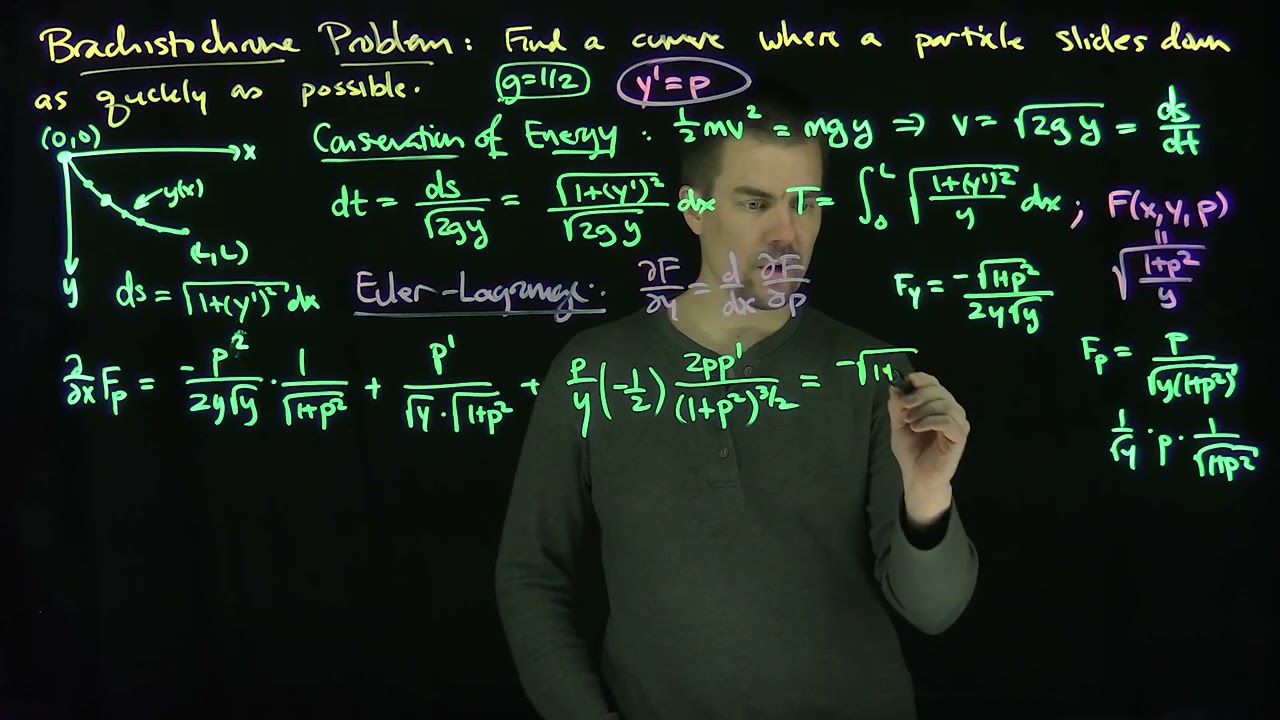 Brachistochrone Problem: Find a curve where a particle slides down
as quickly as possible. g=1/2 y'=p
(0,0) x y(x) (L,L) y
Conservation of Energy: 1/2 mv² = mgy ⇒ v = √(2gy) = ds/dt
dt = ds/√(2gy) = √(1+(y')²)/√(2gy) dx T = ∫₀ᴸ √((1+(y')²)/y) dx ; F(x,y,p)
= √((1+p²)/y)
ds = √(1+(y')²) dx Euler-Lagrange: ∂F/∂y = d/dx ∂F/∂p F_y = -√(1+p²)/(2y√y)
F_p = p/√(y(1+p²))
∂/∂x F_p = -p²/(2y√y) · 1/√(1+p²) + p'/(√y · √(1+p²)) + p/y (-1/2) 2pp'/(1+p²)^(3/2) = -√(1+
1/√y · p · 1/√(1+p²)